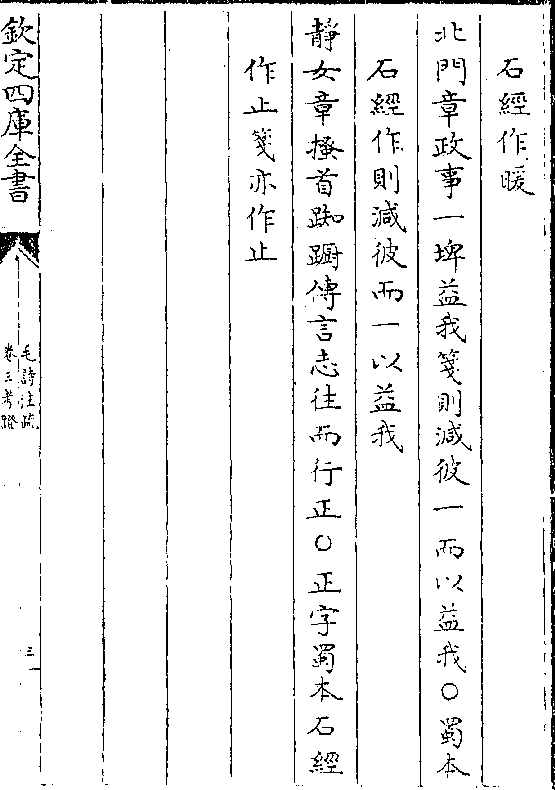 石經作暖
北門章政事一埤益我箋則減彼一而以益我○蜀本
石經作則減彼而一以益我
靜女章搔首踟躕傳言志往而行正○正字蜀本石經
作止箋亦作止
欽定四庫全書
毛詩注疏
卷三考證
三